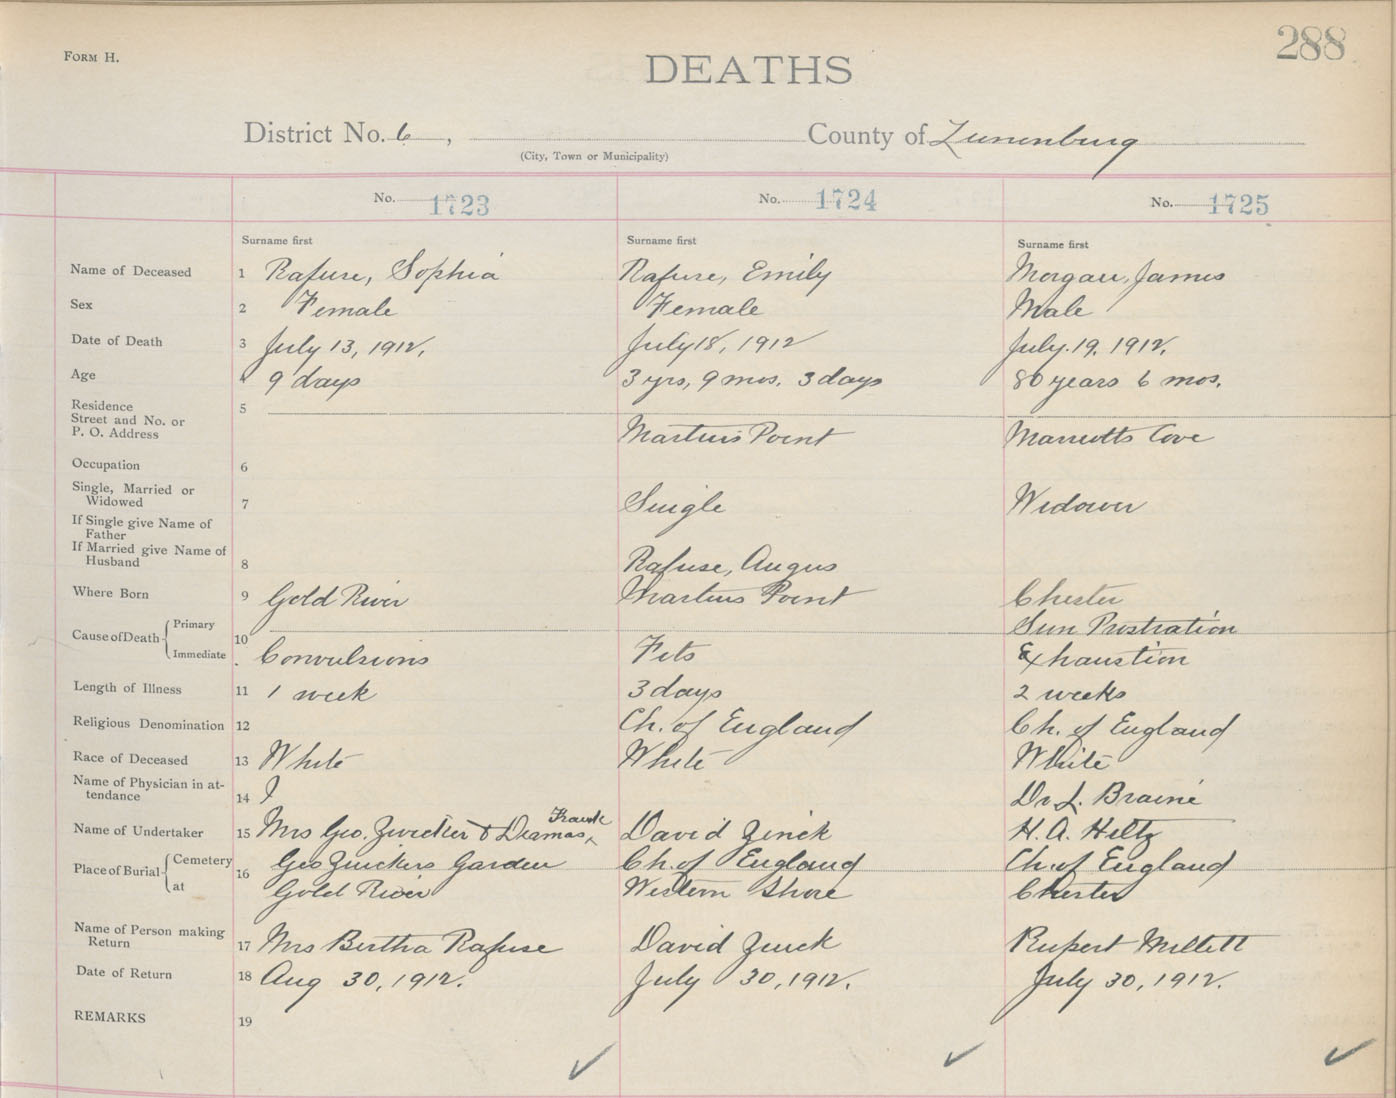 288
FORM H.
DEATHS
District No. 6, County of Lunenburg
(City, Town or Municipality)
No. 1723 No. 1724 No. 1725
Surname first Surname first Surname first
Name of Deceased 1 Rafuse, Sophia Rafuse, Emily Morgan, James
Sex 2 Female Female Male
Date of Death 3 July 13, 1912. July 18, 1912 July. 19. 1912.
Age 4 9 days 3 yrs, 9 mos. 3 days 80 years 6 mos.
Residence 5
Street and No. or
P. O. Address Martins Point Marriotts Cove
Occupation 6
Single, Married or
Widowed 7 Single Widower
If Single give Name of
Father
If Married give Name of
Husband 8 Rafuse, Angus
Where Born 9 Gold River Martins Point Chester
Cause of Death Primary 10 Sun Prostration
Immediate Convulsions Fits Exhaustion
Length of Illness 11 1 week 3 days 2 weeks
Religious Denomination 12 Ch. of England Ch. of England
Race of Deceased 13 White White White
Name of Physician in at-
tendance 14 Dr L. Braine
Name of Undertaker 15 Mrs Geo. Zwicker & Frank David Zinck H. A. Hiltz
Place of Burial Cemetery 16 Geo Zwickers Garden Ch. of England Ch. of England
at Gold River Western Shore Chester
Name of Person making
Return 17 Mrs Bertha Rafuse David Zinck Rupert Millett
Date of Return 18 Aug 30, 1912. July 30, 1912. July 30, 1912.
REMARKS 19